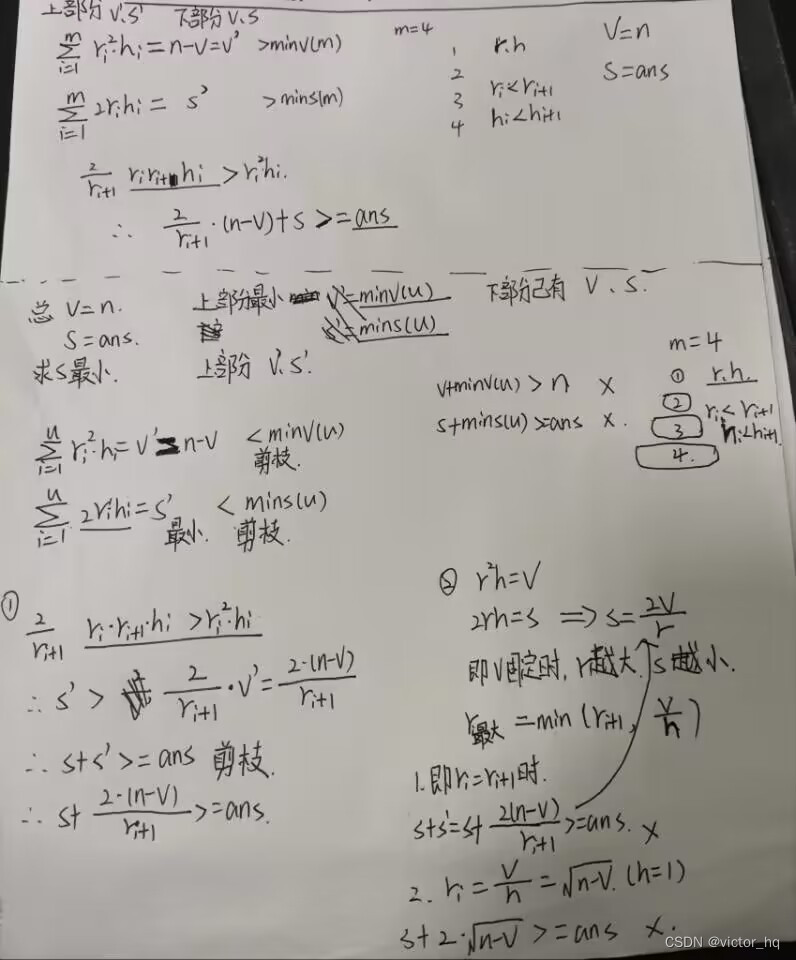 上部分 V'.S' 下部分 V.S
∑_{i=1}^{m} ri²·hi = n-V = V' >minV(m)
m=4
1 r.h
2
3 ri<ri+1
4 hi<hi+1
V=n
S=ans
∑_{i=1}^{m} 2rihi = S' >mins(m)
2/ri+1 riri+1hi > ri²hi.
∴ 2/ri+1 ·(n-V)+S >= ans
总 V=n. 上部分最小 V'=minV(u) 下部分已有 V、S.
S=ans. S'=mins(u)
求S最小. 上部分 V'.S'
V+minV(u) > n ×
S+mins(u) >=ans ×.
m=4
① r.h.
② ri<ri+1
3 hi<hi+1
4.
∑_{i=1}^{u} ri²·hi = V' = n-V <minV(u)
剪枝.
∑_{i=1}^{u} 2rihi = S' < mins(u)
最小. 剪枝.
①
2/ri+1 ri·ri+1·hi >ri²·hi
∴ S' > 2/ri+1 ·V' = 2·(n-V)/ri+1
∴ S+S' >= ans 剪枝.
∴ S+ 2·(n-V)/ri+1 >=ans.
② r²h=V
2rh=S => S=2V/r
即V固定时, r越大. S越小.
r最大 =min (ri+1, V/h)
1.即ri=ri+1时.
S+S'=S+ 2(n-V)/ri+1 >=ans. ×
2. ri = V/h = √n-V. (h=1)
S+2·√n-V >=ans ×.
CSDN @victor_hq